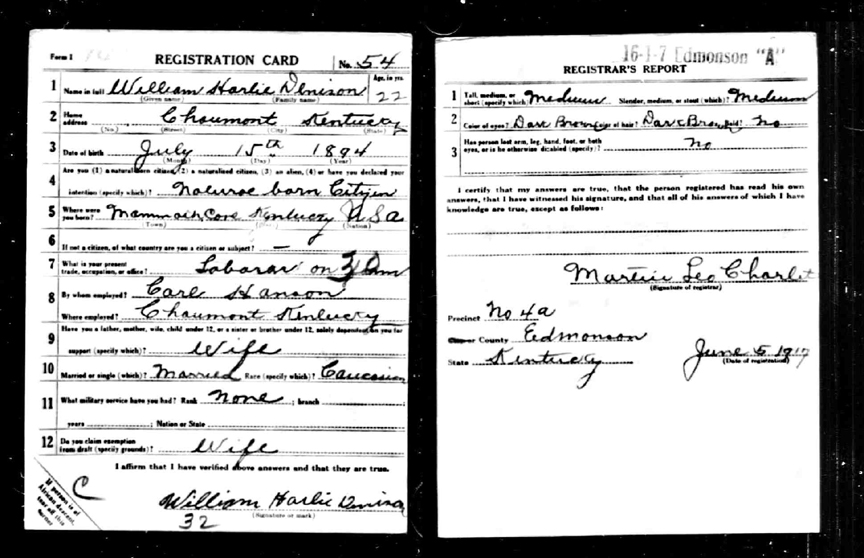 Form 1
REGISTRATION CARD No. 54
1 Name in full William Harlie Denison Age, in yrs. 22
(Given name) (Family name)
2 Home address Chaumont Kentucky
(No.) (Street) (City) (State)
3 Date of birth July 15th 1894
(Month) (Day) (Year)
4 Are you (1) a natural born citizen, (2) a naturalized citizen, (3) an alien, (4) or have you declared your
intention (specify which)? Naturae born Citizen
5 Where were you born? Mammoth Cave Kentucky U S a
(Town) (State) (Nation)
6 If not a citizen, of what country are you a citizen or subject? —
7 What is your present trade, occupation, or office? Labarar on
8 By whom employed? Carl Hanson
Where employed? Chaumont Kentucky
9 Have you a father, mother, wife, child under 12, or a sister or brother under 12, solely dependent on you for
support (specify which)? Wife
10 Married or single (which)? Married Race (specify which)? Caucasian
11 What military service have you had? Rank None ; branch
years ; Nation or State
12 Do you claim exemption from draft (specify grounds)? Wife
I affirm that I have verified above answers and that they are true.
C
If person is of African descent, tear off this corner
William Harlie Denison
32 (Signature or mark)
16-1-7 Edmonson "A"
REGISTRAR'S REPORT
1 Tall, medium, or short (specify which)? Medium Slender, medium, or stout (which)? Medium
2 Color of eyes? Dark Brown Color of hair? Dark Brown Bald? No
3 Has person lost arm, leg, hand, foot, or both
eyes, or is he otherwise disabled (specify)? No
I certify that my answers are true, that the person registered has read his own
answers, that I have witnessed his signature, and that all of his answers of which I have
knowledge are true, except as follows:
Leo
(Signature of registrar)
Precinct No 4a
County Edmonson
State Kentucky June 5 1917
(Date of registration)